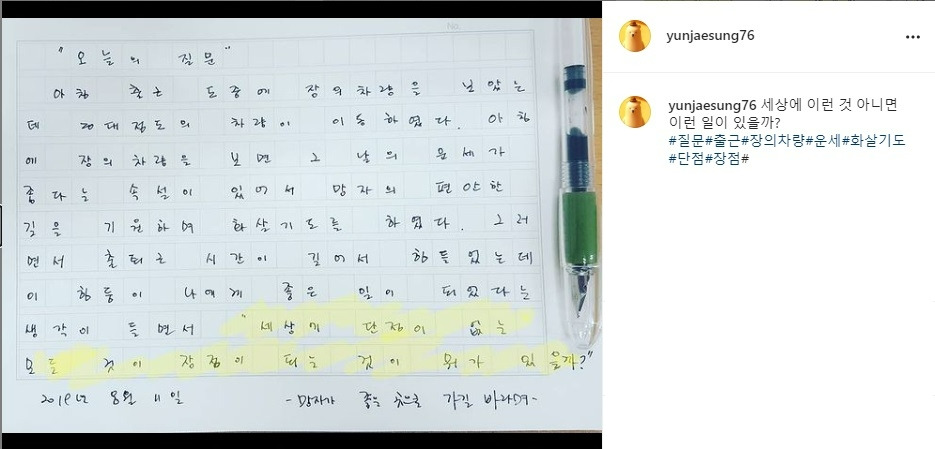 No.
"오늘의 질문"
아침 출근 도중에 장의차량을 보았는
데 20대정도의 차량이 이동하였다. 아침
에 장의차량을 보면 그 날의 운세가
좋다는 속설이 있어서 망자의 편안한
길을 기원하며 화살기도를 하였다. 그러
면서 출퇴근 시간이 길어서 힘들었는데
이 힘듦이 나에게 좋은 일이 되었다는
생각이 들면서 "세상에 단점이 없는
모든 것이 장점이 되는 것이 뭐가 있을까?"
2019년 8월 11일 -망자가 좋은 곳으로 가길 바라며-
yunjaesung76
yunjaesung76 세상에 이런 것 아니면
이런 일이 있을까?
#질문#출근#장의차량#운세#화살기도
#단점#장점#